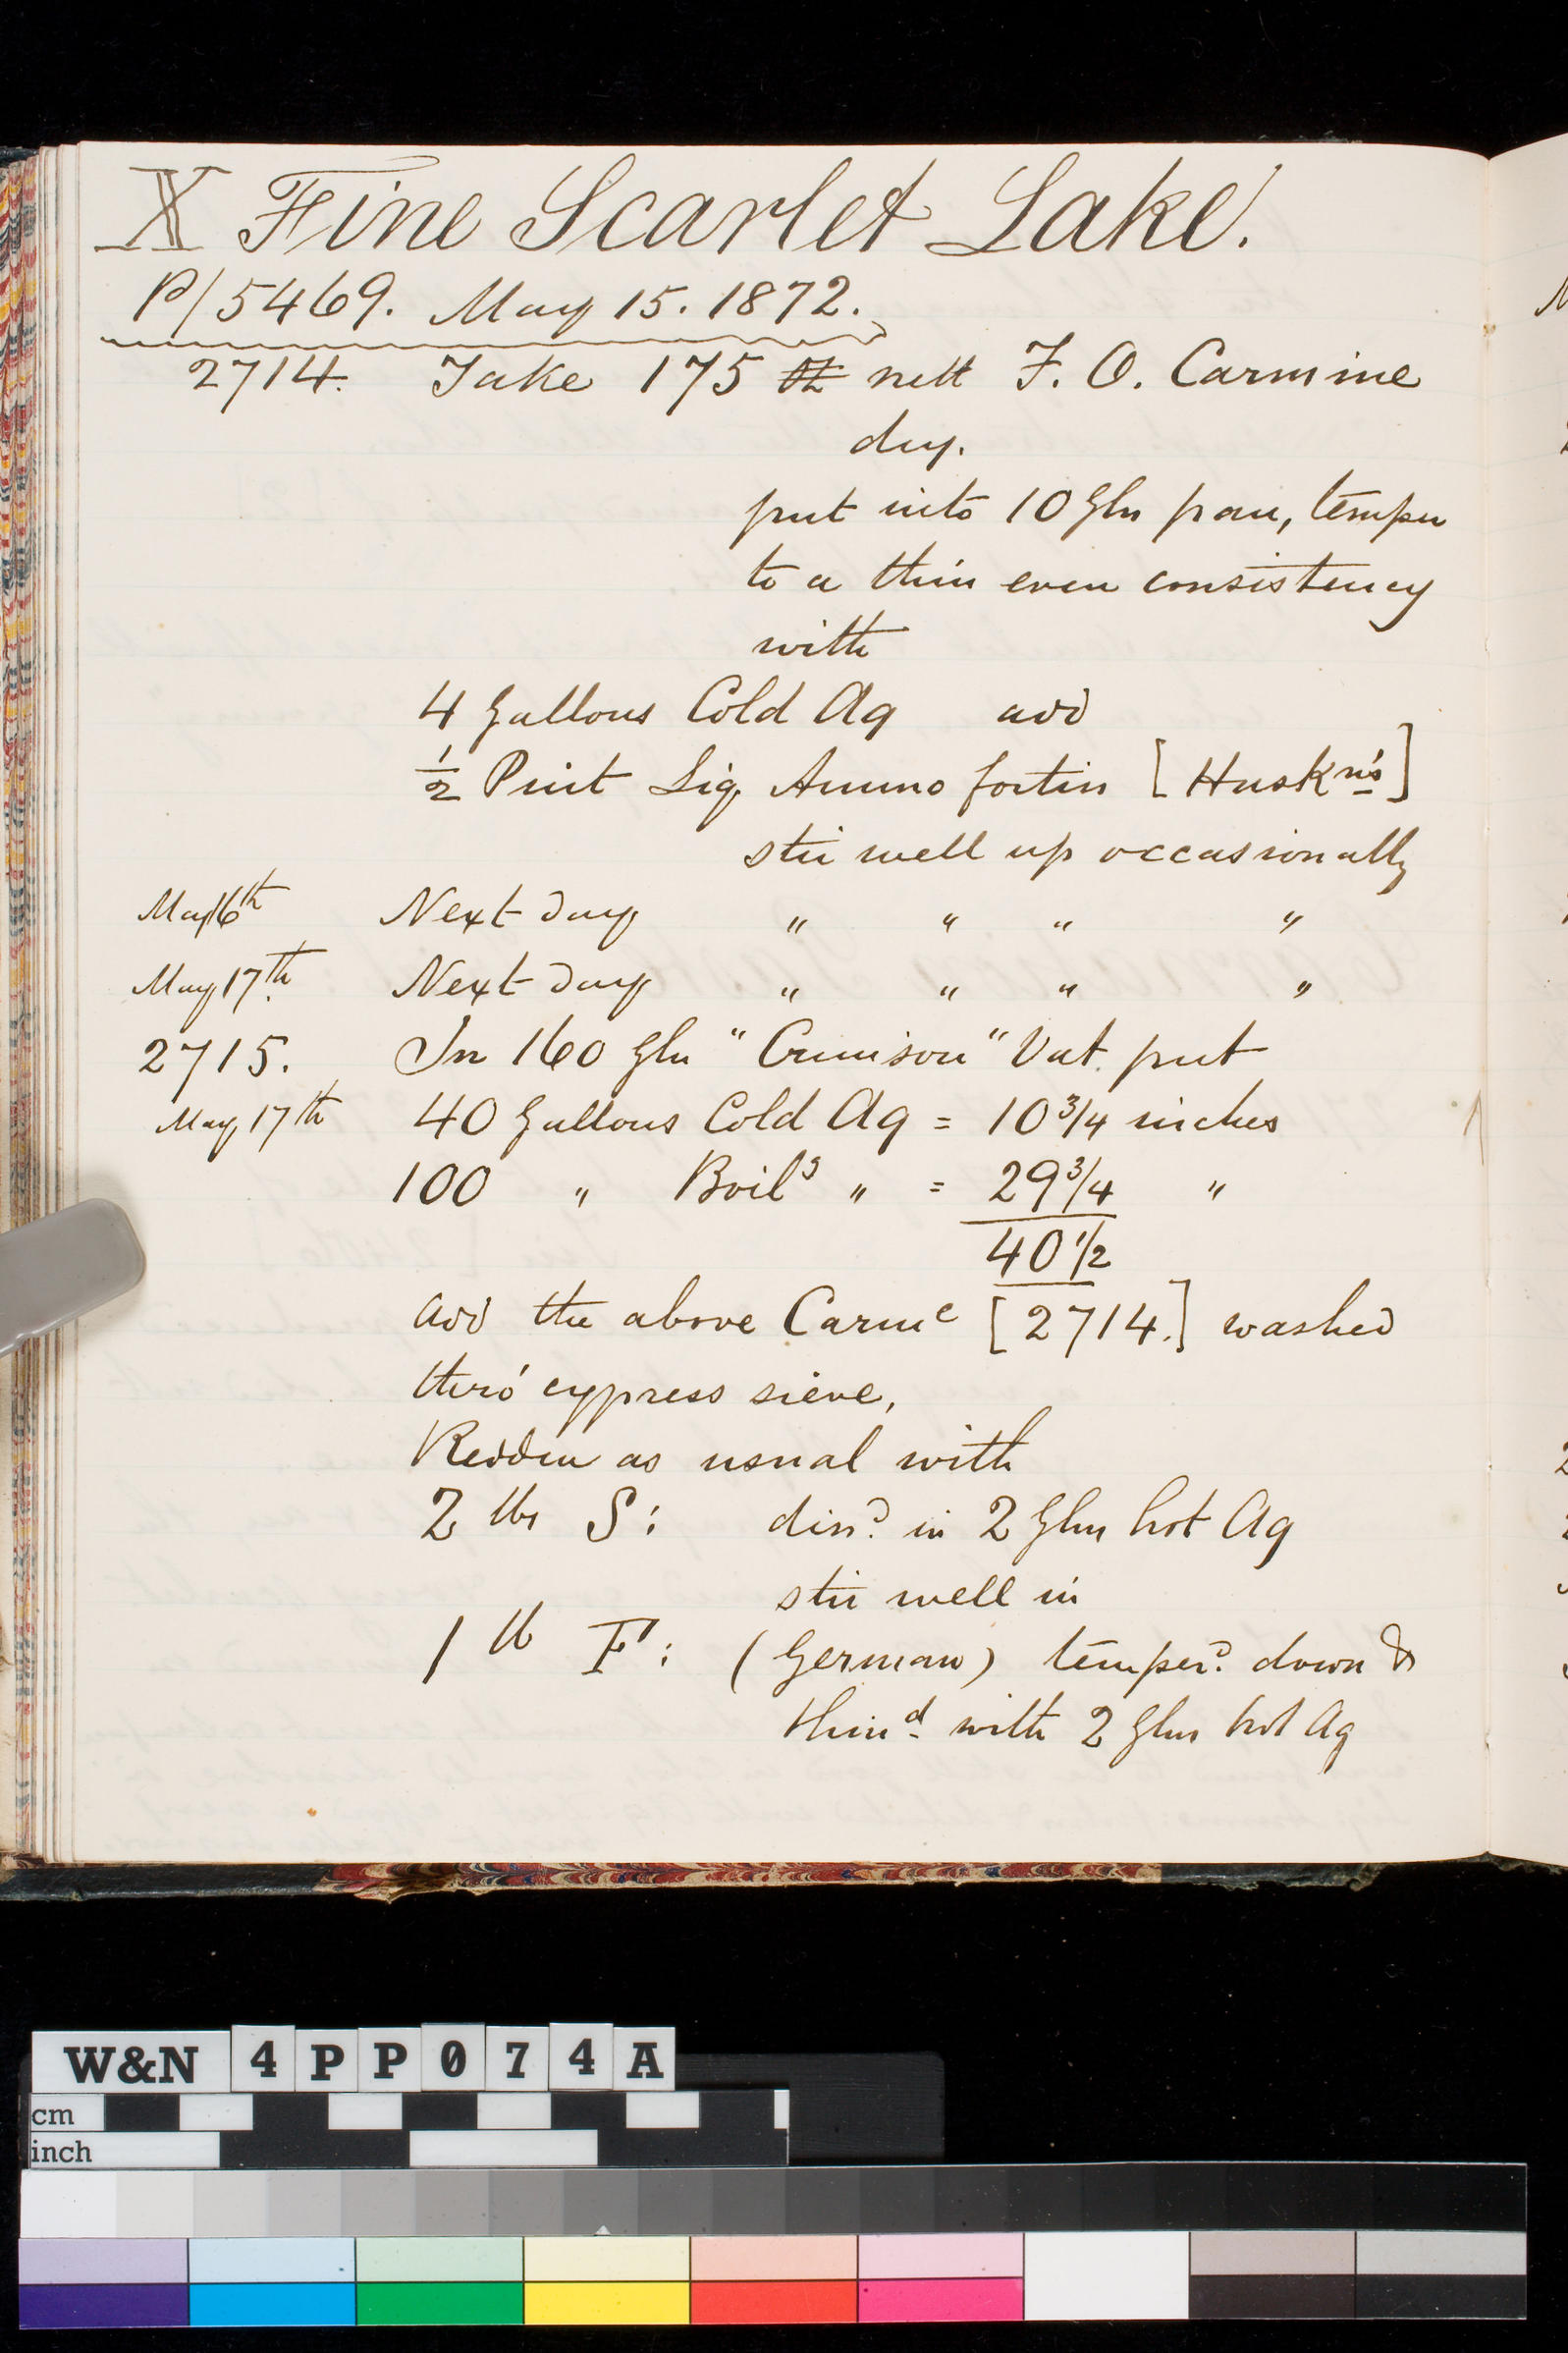 X Fine Scarlet Lake.
P/5469. May 15. 1872.
2714. Take 175 oz nett F. O. Carmine
dry.
put into 10 Gln pan, temper
to a thin even consistency
with
4 Gallons Cold Aq add
1/2 Pint Liq Ammo fortis [Huskns]
stir well up occasionally
May 16th Next day " " " "
May 17th Next day " " " "
2715. In 160 Gln "Crimson" Vat. put
May 17th 40 Gallons Cold Aq = 10 3/4 inches
100 " Boilg " = 29 3/4 "
40 1/2
add the above Carme [2714.] washed
thro' cypress sieve,
Redden as usual with
2 lbs S: disd. in 2 Glns hot Aq
stir well in
1 lb F: (German) temperd. down &
thind with 2 Glns hot Aq
W&N 4PP074A
cm
inch